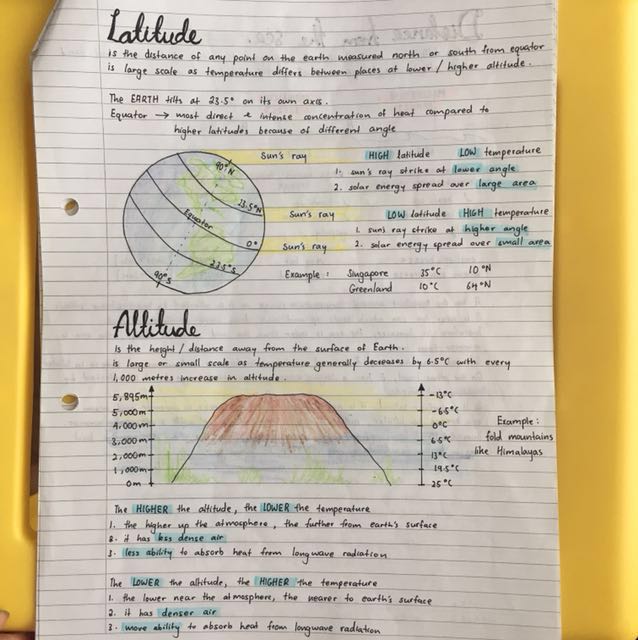 Latitude
is the distance of any point on the earth measured north or south from equator
is large scale as temperature differs between places at lower / higher altitude.
The EARTH tilts at 23.5° on its own axis.
Equator → most direct & intense concentration of heat compared to
higher latitudes because of different angle
Sun's ray HIGH latitude LOW temperature
90°N
1. sun's ray strike at lower angle
2. solar energy spread over large area
23.5°N
Sun's ray LOW latitude HIGH temperature
Equator
1. sun's ray strike at higher angle
0° Sun's ray 2. solar energy spread over small area
23.5°S
90°S
Example : Singapore 35°C 10°N
Greenland 10°C 64°N
Altitude
is the height / distance away from the surface of Earth.
is large or small scale as temperature generally decreases by 6.5°C with every
1,000 metres increase in altitude.
5,895m -13°C
5,000m -6.5°C
4,000m 0°C
3,000m 6.5°C
2,000m 13°C
1,000m 19.5°C
0m 25°C
Example :
fold mountains
like Himalayas
The HIGHER the altitude, the LOWER the temperature
1. the higher up the atmosphere, the further from earth's surface
2. it has less dense air
3. less ability to absorb heat from longwave radiation
The LOWER the altitude, the HIGHER the temperature
1. the lower near the atmosphere, the nearer to earth's surface
2. it has denser air
3. more ability to absorb heat from longwave radiation